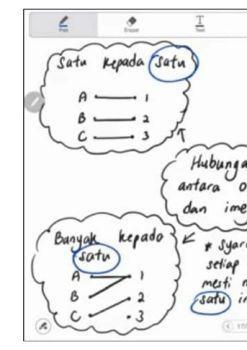 Pen
Eraser
Text
Satu kepada satu
A 1
B 2
C 3
Hubunga
antara o
dan ime
Banyak kepada
satu
A 1
B 2
C 3
* Syar
setiap
mesti m
satu i